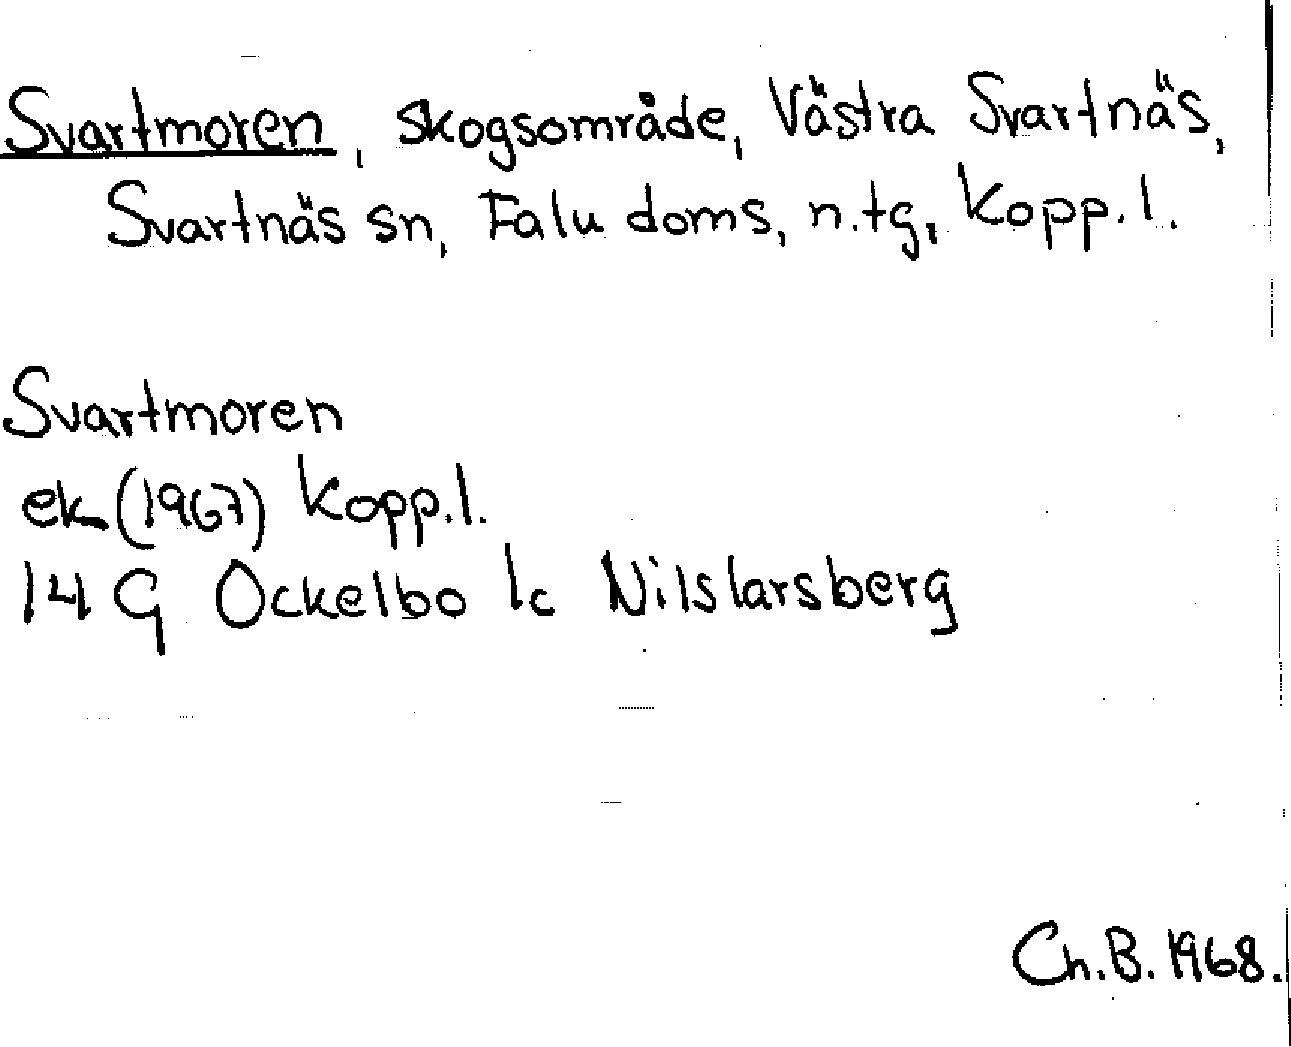 Svartmoren, skogsområde, Västra Svartnäs,
Svartnäs sn, Falu doms, n.tg, Kopp.l.
Svartmoren
ek (1967) Kopp.l.
14 G Ockelbo 1c Nilslarsberg
Ch.B. 1968.